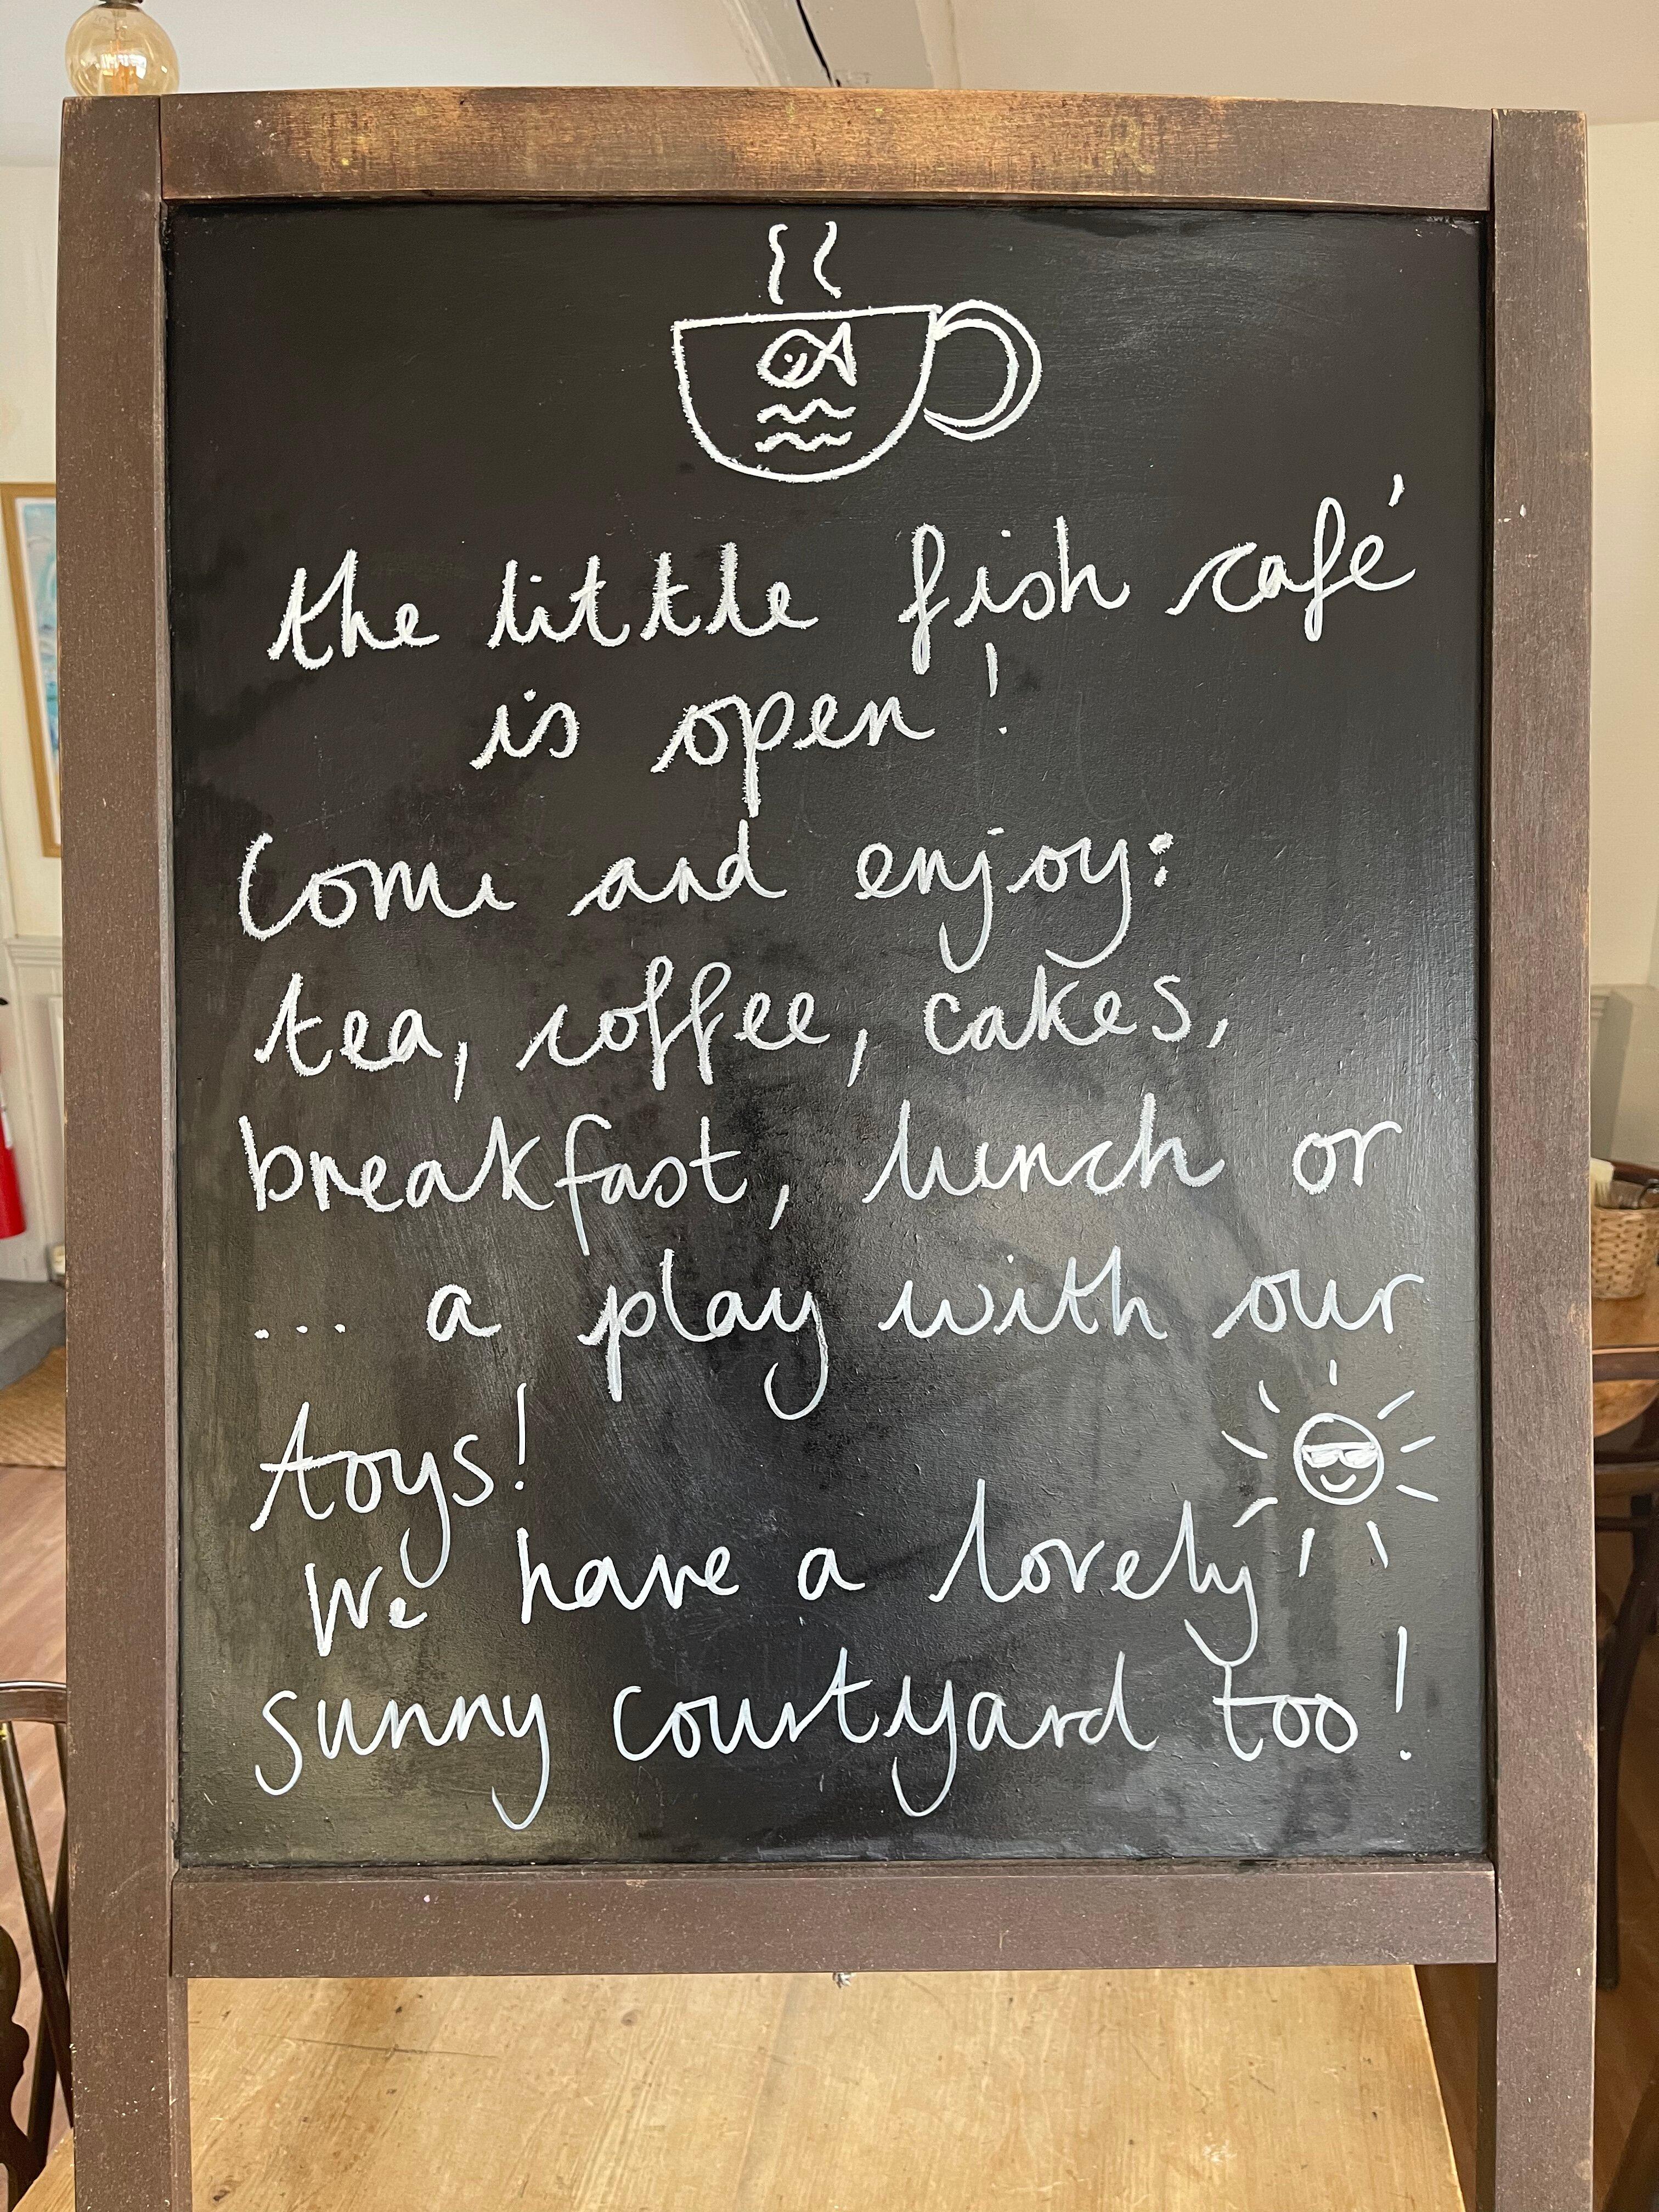 the little fish café
is open!
Come and enjoy:
tea, coffee, cakes,
breakfast, lunch or
... a play with our
toys!
We have a lovely
sunny courtyard too!